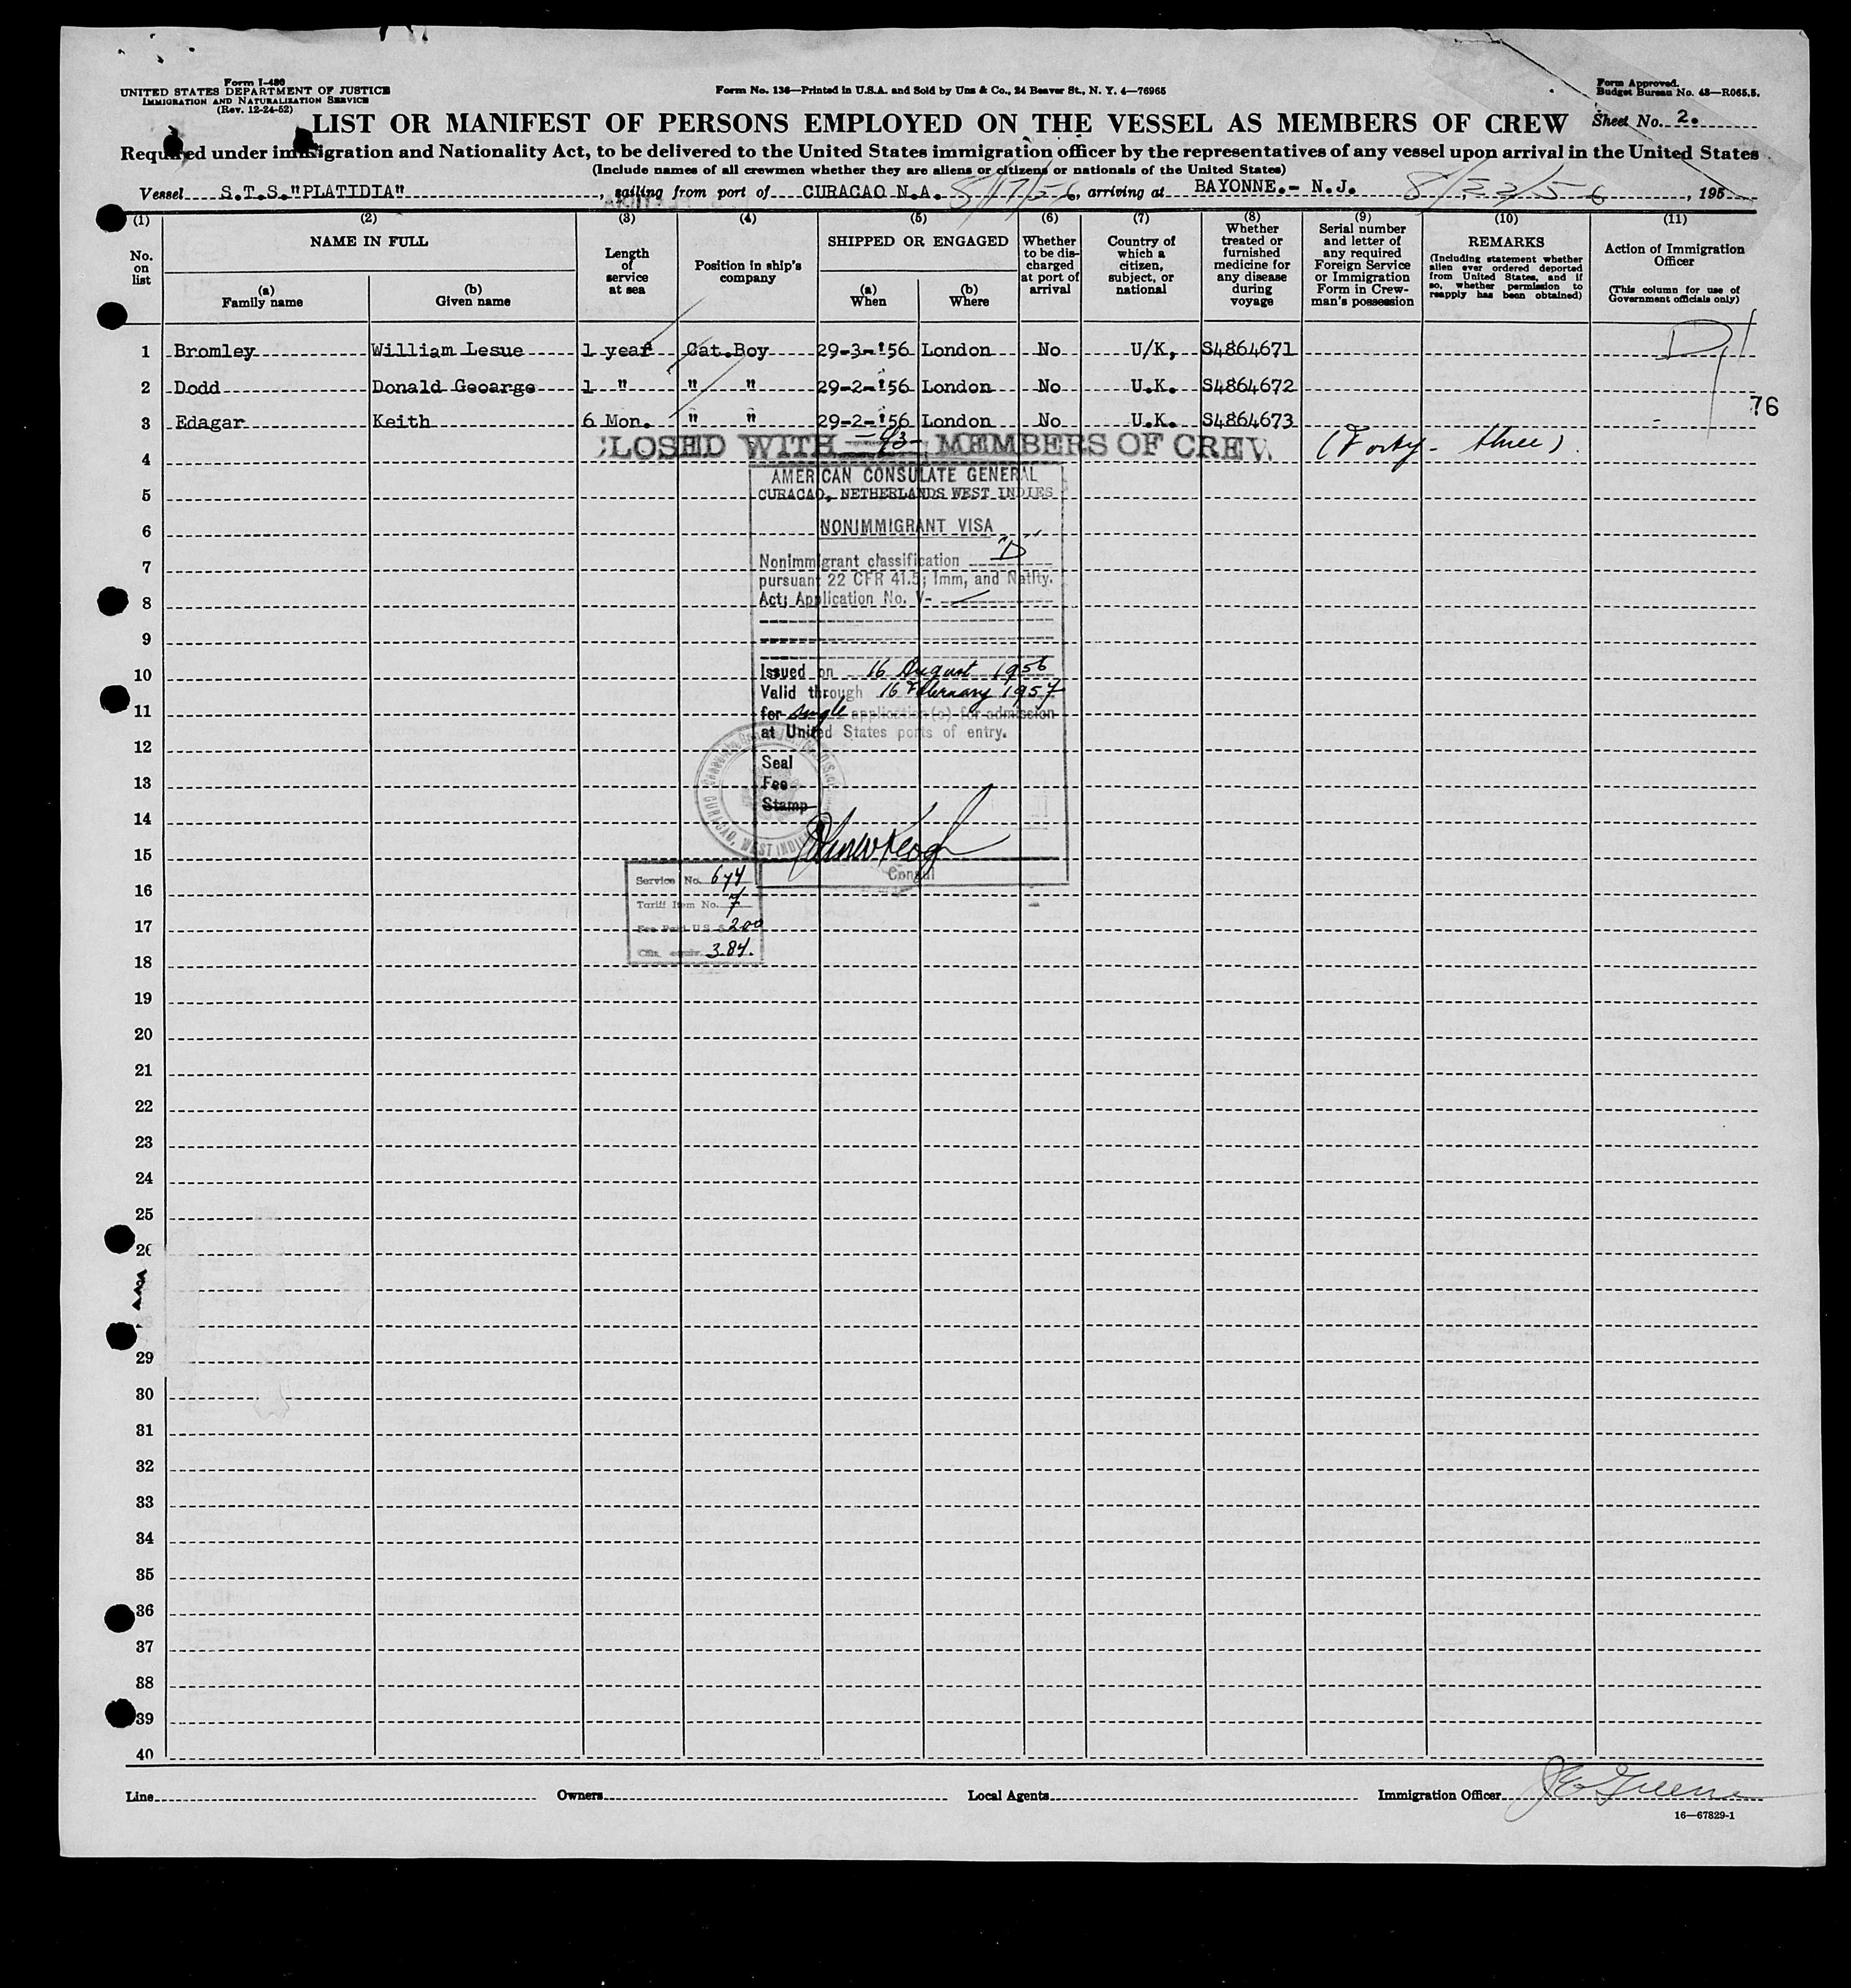 Form I-480
UNITED STATES DEPARTMENT OF JUSTICE
IMMIGRATION AND NATURALIZATION SERVICE
(Rev. 12-24-52)
Form No. 136—Printed in U.S.A. and Sold by Unz & Co., 24 Beaver St., N. Y. 4—76965
Form Approved.
Budget Bureau No. 43—R065.5.
LIST OR MANIFEST OF PERSONS EMPLOYED ON THE VESSEL AS MEMBERS OF CREW Sheet No. 2.
Required under immigration and Nationality Act, to be delivered to the United States immigration officer by the representatives of any vessel upon arrival in the United States
(Include names of all crewmen whether they are aliens or citizens or nationals of the United States)
Vessel S.T.S."PLATIDIA", sailing from port of CURACAO N.A. 8/17/56, arriving at BAYONNE.- N.J. 8/22/56, 195
(1) (2) (3) (4) (5) (6) (7) (8) (9) (10) (11)
No. on list
NAME IN FULL
(a) Family name
(b) Given name
Length of service at sea
Position in ship's company
SHIPPED OR ENGAGED
(a) When
(b) Where
Whether to be discharged at port of arrival
Country of which a citizen, subject, or national
Whether treated or furnished medicine for any disease during voyage
Serial number and letter of any required Foreign Service or Immigration Form in Crewman's possession
REMARKS
(Including statement whether alien ever ordered deported from United States, and if so, whether permission to reapply has been obtained)
Action of Immigration Officer
(This column for use of Government officials only)
1 Bromley William Lesue 1 year Cat.Boy 29-3-'56 London No U/K, S4864671 D
2 Dodd Donald Geoarge 1 " " " 29-2-'56 London No U.K. S4864672
76
3 Edagar Keith 6 Mon. " " 29-2-'56 London No U.K. S4864673
CLOSED WITH -43- MEMBERS OF CREW. (Forty- three).
4
AMERICAN CONSULATE GENERAL
5
CURACAO, NETHERLANDS WEST INDIES
6
NONIMMIGRANT VISA
7
Nonimmigrant classification "D"
pursuant 22 CFR 41.5; Imm, and Natlty.
8
Act; Application No. V-
9
10
Issued on 16 August 1956
Valid through 16 February 1957
11
for single application(s) for admission
at United States ports of entry.
12
Seal
13
Fee
Stamp
14
CURACAO, WEST INDIES
15
Consul
16
Service No. 674
Tariff Item No. 7
17
Fee Paid U.S. $ 2.00
18
equiv. 3.84.
19
20
21
22
23
24
25
26
29
30
31
32
33
34
35
36
37
38
39
40
Line Owners Local Agents Immigration Officer
16—67829-1